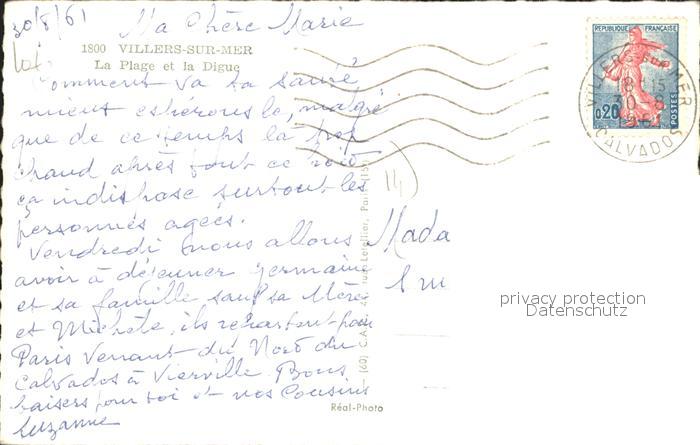 30/8/61 Ma Chère Marie
1800 VILLERS-SUR-MER
La Plage et la Digue
Comment va ta santé
mieux espérons le, malgré
que de ce temps là trop
chaud après tout ce froid
ça indispose surtout les
personnes agées.
Vendredi nous allons
avoir à déjeuner Germaine
et sa famille sauf sa Mère
et Michèle, ils repartent pour
Paris venant du Nord du
Calvados à Vierville. Bons
baisers pour toi et nos Cousins
Suzanne
REPUBLIQUE FRANÇAISE
0,20
POSTES
VILLERS SUR MER
18 H 15
30 - 8
CALVADOS
14
Mada
privacy protection
Datenschutz
Réal-Photo